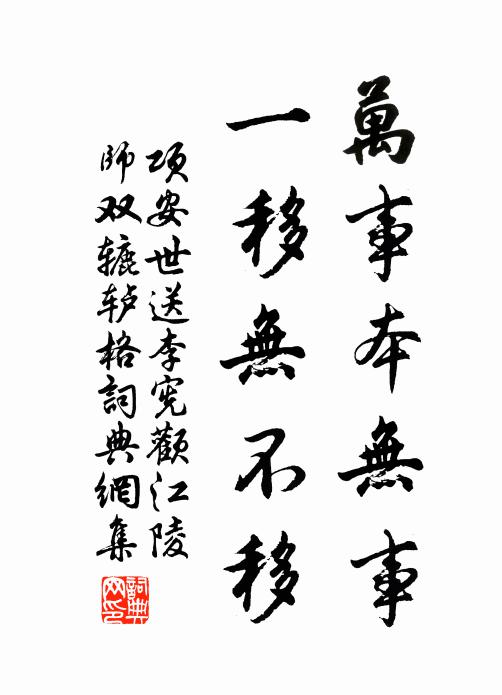 萬事本無事
一移無不移
項安世送李宪觀江陵
師双辘轳格詞典網集
詞典网印